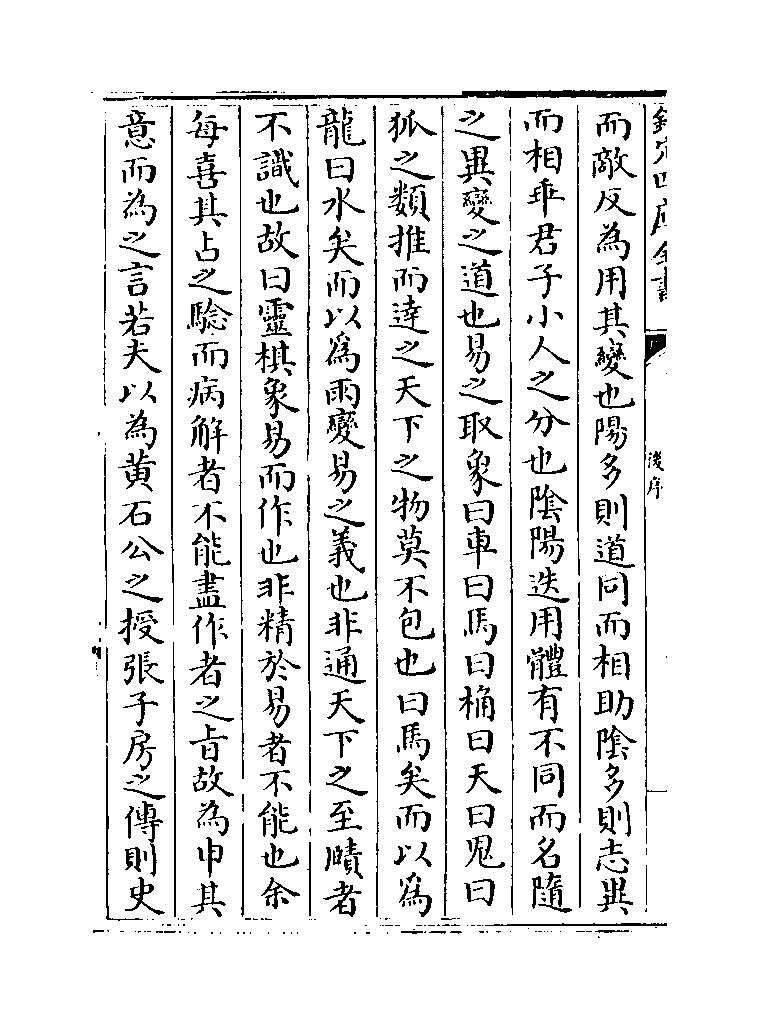 欽定四庫全書
後序
而敵反為用其變也陽多則道同而相助陰多則志異
而相乖君子小人之分也陰陽迭用體有不同而名隨
之異變之道也易之取象曰車曰馬曰桷曰天曰鬼曰
狐之類推而達之天下之物莫不包也曰馬矣而以為
龍曰水矣而以為雨變易之義也非通天下之至賾者
不識也故曰靈棋象易而作也非精於易者不能也余
每喜其占之驗而病解者不能盡作者之旨故為申其
意而為之言若夫以為黃石公之授張子房之傳則史